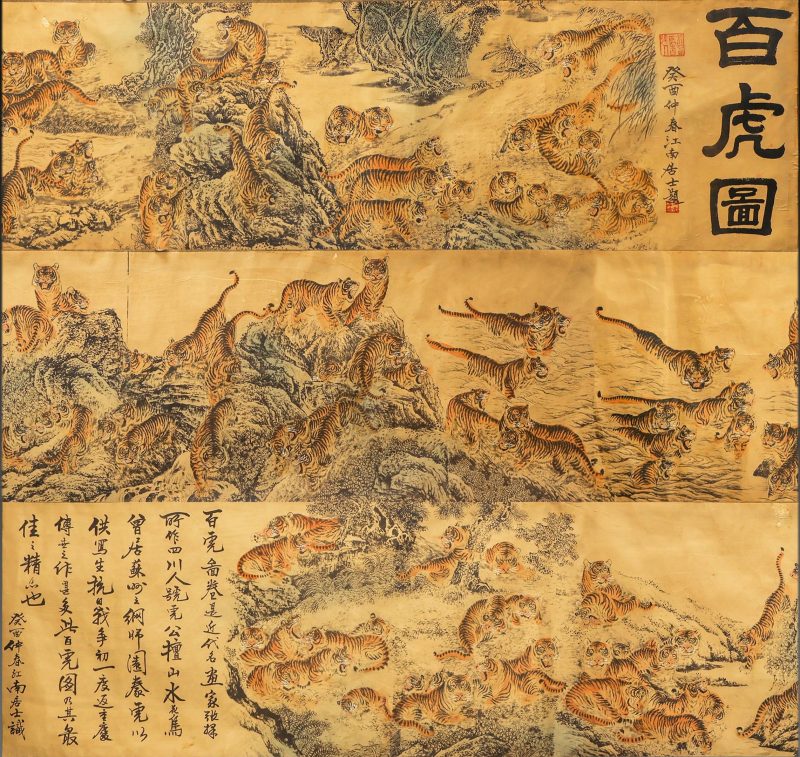 百虎圖
癸酉仲春江南居士題
百虎圖卷是近代名畫家張
所作四川人號虎公擅山水
曾居蘇州之網師園養虎以
供寫生抗日戰爭初一度返重慶
傳世之作甚多此百虎圖乃其最
佳之精品也
癸酉仲春江南居士識